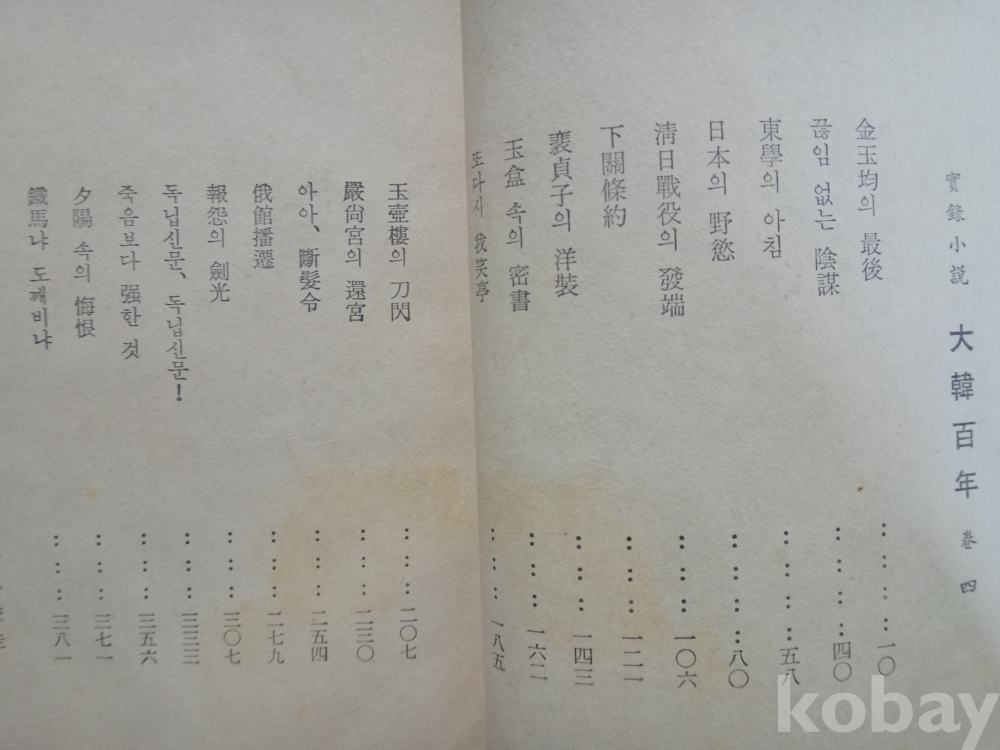 實錄小説 大韓百年 卷四
金玉均의 最後 ………一〇
끊임 없는 陰謀 ………四〇
東學의 아침 ………五八
日本의 野慾 ………八〇
淸日戰役의 發端 ………一〇六
下關條約 ………一二一
裵貞子의 洋裝 ………一四三
玉盒 속의 密書 ………一六二
또다시 我笑亭 ………一八五
玉壺樓의 刀閃 ………二〇七
嚴尙宮의 還宮 ………二三〇
아아、斷髮令 ………二五四
俄館播遷 ………二七九
報怨의 劍光 ………三〇七
독닙신문、독닙신문!………三三三
죽음보다 强한 것 ………三五六
夕陽 속의 悔恨 ………三七一
鐵馬냐 도깨비냐 ………三八一
kobay